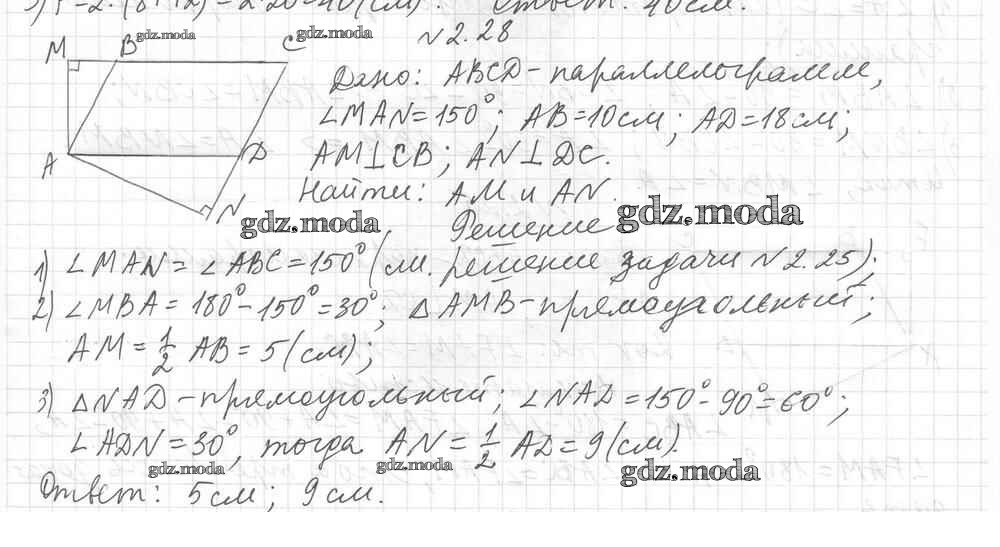 3) P=2·(8+12)=2·20=40(см). Ответ: 40см.
№2.28
M B C
A D
N
gdz.moda gdz.moda
Дано: ABCD-параллелограмм,
∠MAN=150°; AB=10см; AD=18см;
AM⊥CB; AN⊥DC.
Найти: AM и AN.
gdz.moda gdz.moda
Решение
1) ∠MAN=∠ABC=150° (см. решение задачи №2.25);
2) ∠MBA=180°-150°=30°; △AMB-прямоугольный;
AM=1/2 AB=5(см);
3) △NAD-прямоугольный; ∠NAD=150°-90°=60°;
∠ADN=30°, тогда AN=1/2 AD=9(см).
gdz.moda gdz.moda gdz.moda
Ответ: 5см; 9см.